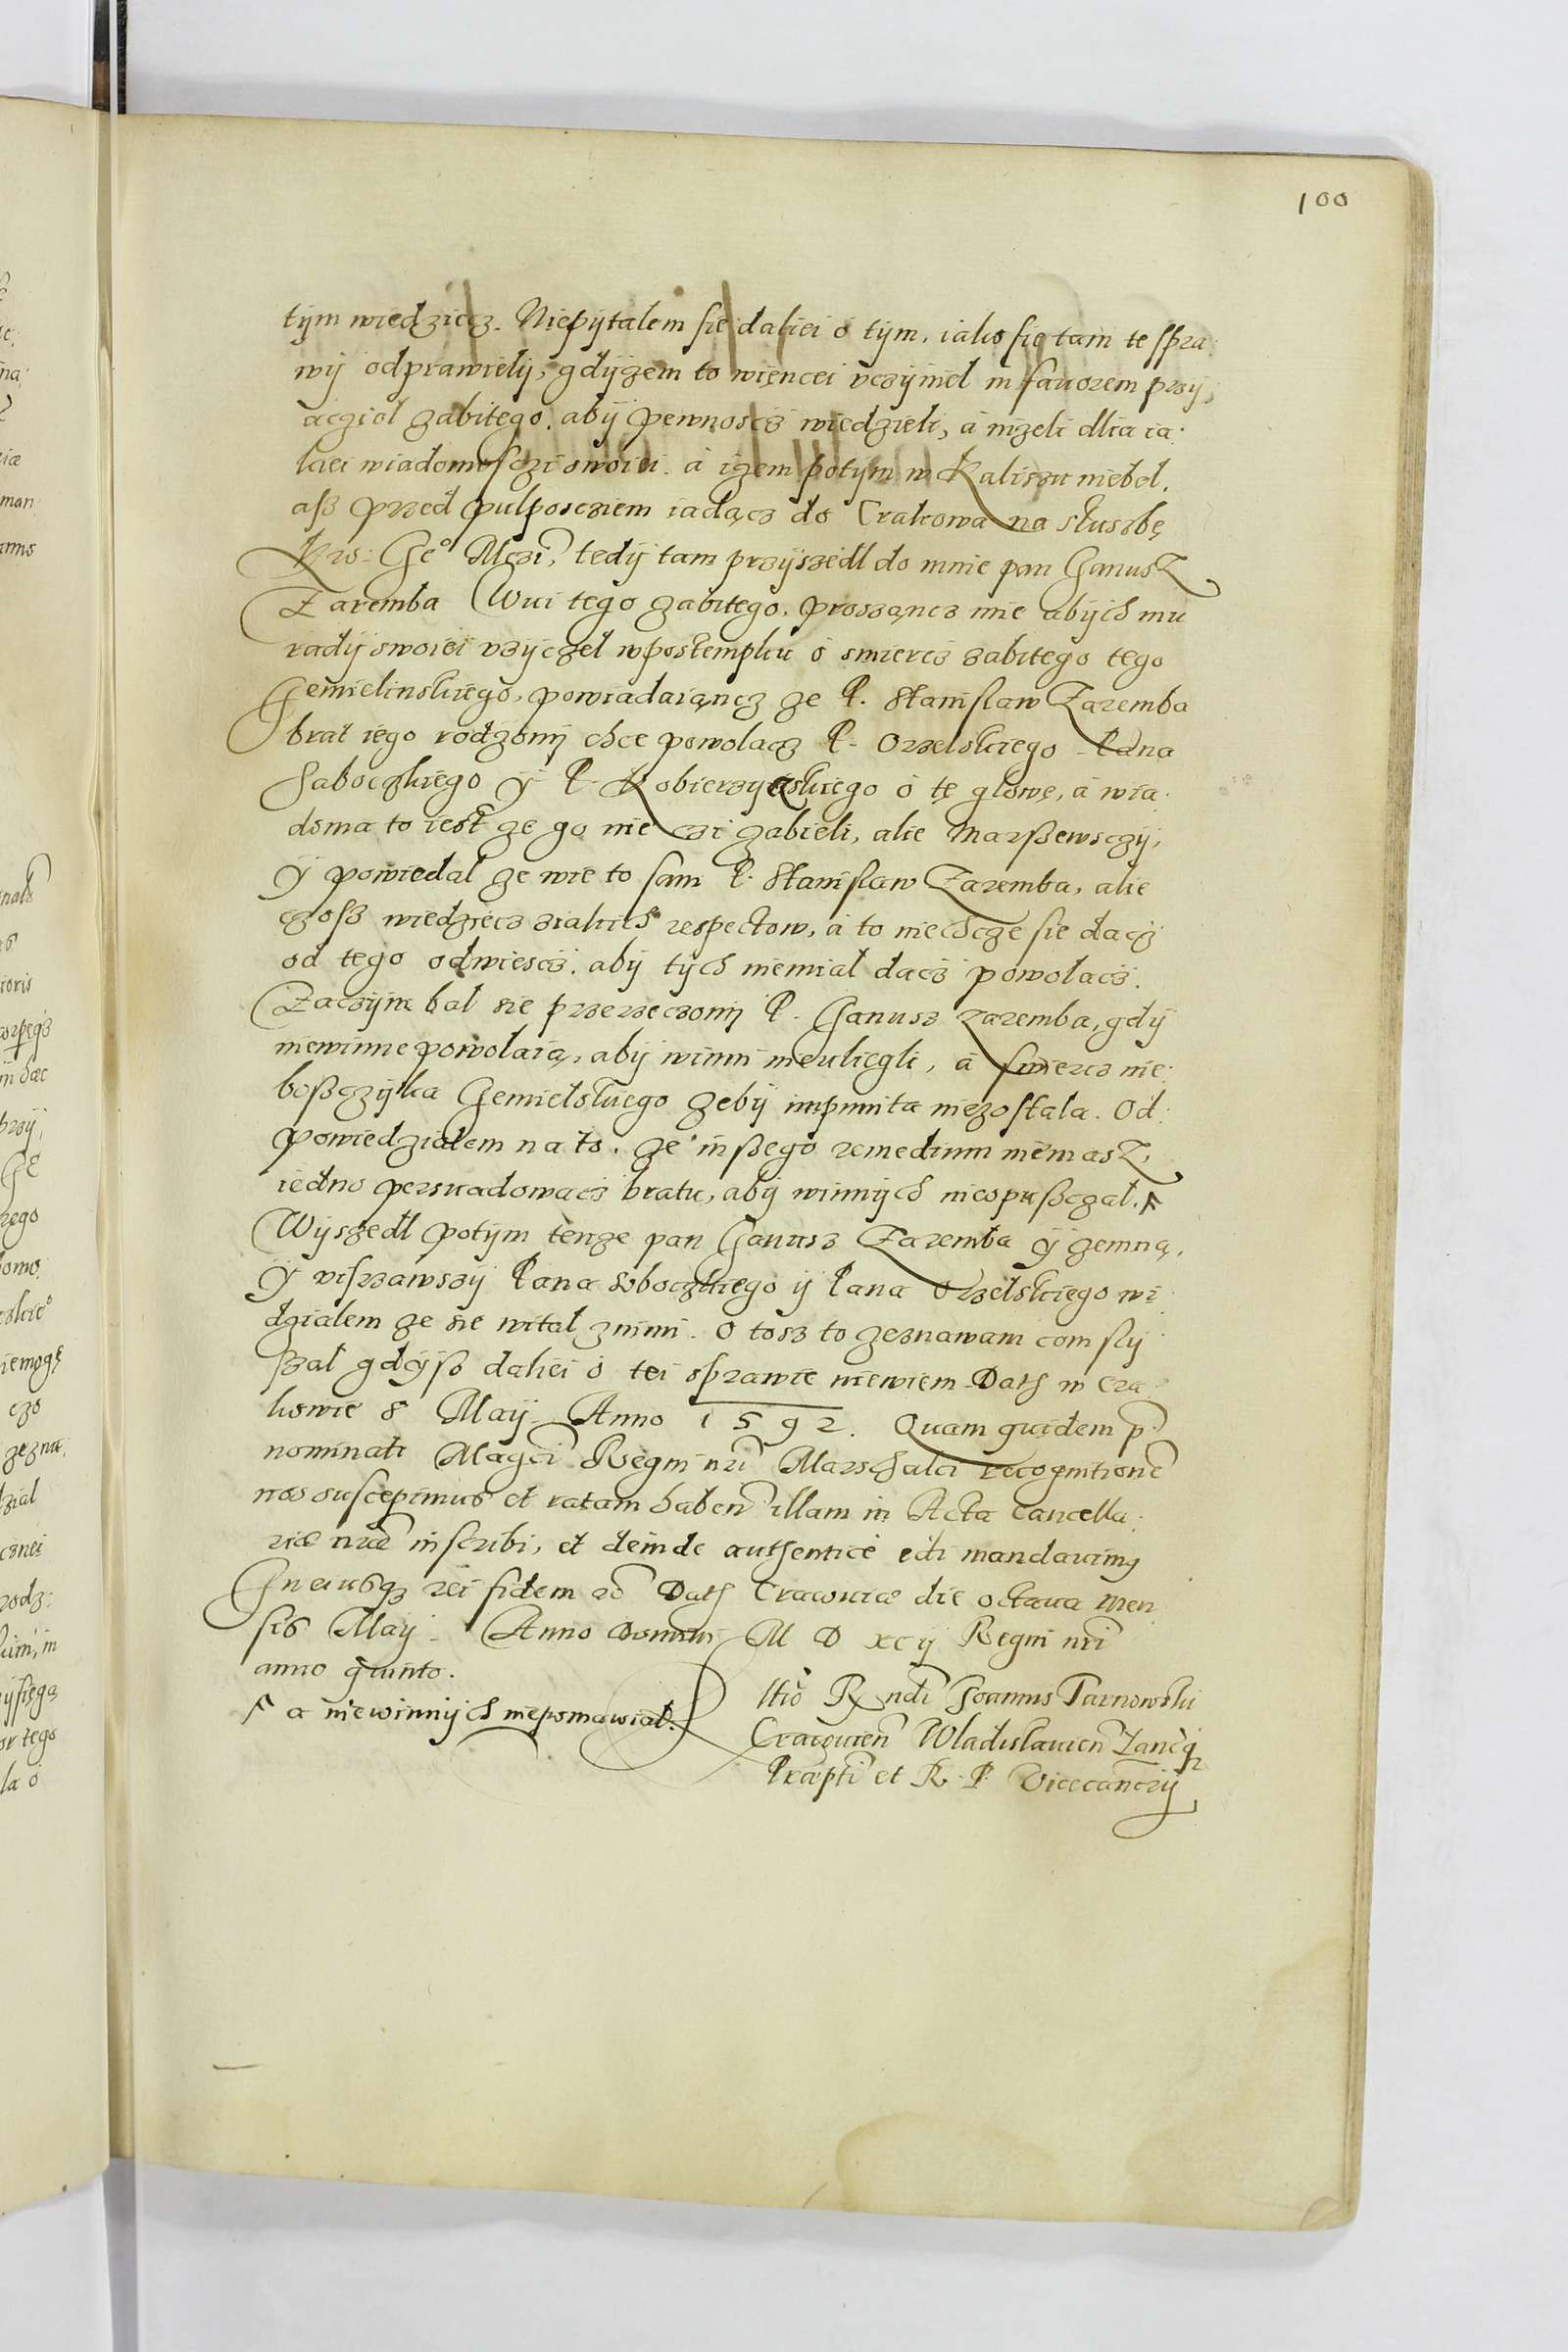 100
tym wiedziecz. Niepytalem sie daliei o tym, iako się tam te spra:
wy odprawiely, gdyzem to więncei uczyniel in favorem przy,
aczioł zabitego, aby pewnoscz wiedzieli, a nizeli dlia ia:
kiei wiadomosczi swoiei. a izem potym w Kaliszu niebel,
asz przed pulposcziem iadącz do Crakowa na słuszbę
Kro: Ge° Mczi, tedy tam przyszedl do mnie pan Janusz
Zaremba Wui tego zabitego, proszącz mie abych mu
rady swoiei uzyczel w postempku o smiercz zabitego tego
Jemielinskiego, powiadaiącz ze P. Stanislaw Zaremba
brat iego rodzony chce powolacz P. Orzelskiego Pana
Saboczkiego y P. Kobierzyckiego o tę glowę, a wia:
doma to iest ze go nie czi zabieli, alie Marszewsczy,
y powiedal ze wie to sam P. Stanislaw Zaremba, alie
czosz wiedziecz ziakich respectow, a to niechcze sie dacz
od tego odwiescz. aby tych niemial dacz powolacz.
Zaczym bal sie przerzeczony P. Janusz Zaremba, gdy
niewinne powolaią, aby winni nieuliegli, a smiercz nie:
boszczyka Jemielskiego zeby impunita niezostala. Od:
powiedzialem na to, ze inszego remedium niemasz,
iedno persuadowacz bratu, aby winnych nieopuszczal.
Wyszedl potym tenze pan Janusz Zaremba y zemną,
y uisrzawszy Pana Soboczkiego y Pana Orzelskiego wi
dzialem ze sie witał znimi. O tosz to zeznawam com sly
szal gdysz daliei o tei sprawie niewiem Dath w Cra
kowie 8 Maij Anno 1592. Quam quidem p
nominati Magci Regni nri Marschalci recognitione
nos suscepimus et ratam haben illam in Acta Cancella:
riæ nræ inscribi, et deinde authentice edi mandavimus
In cuiusq rei fidem Dath Cracoviæ die octava Men
sis Maij Anno Domini M D xcij Regni nri
anno quinto.
a niewinnych niepomawial.
Rndi Joannis Tarnowski
Cracovien Wladislavien Lancq
Præpti et R. P. Vicecancrij